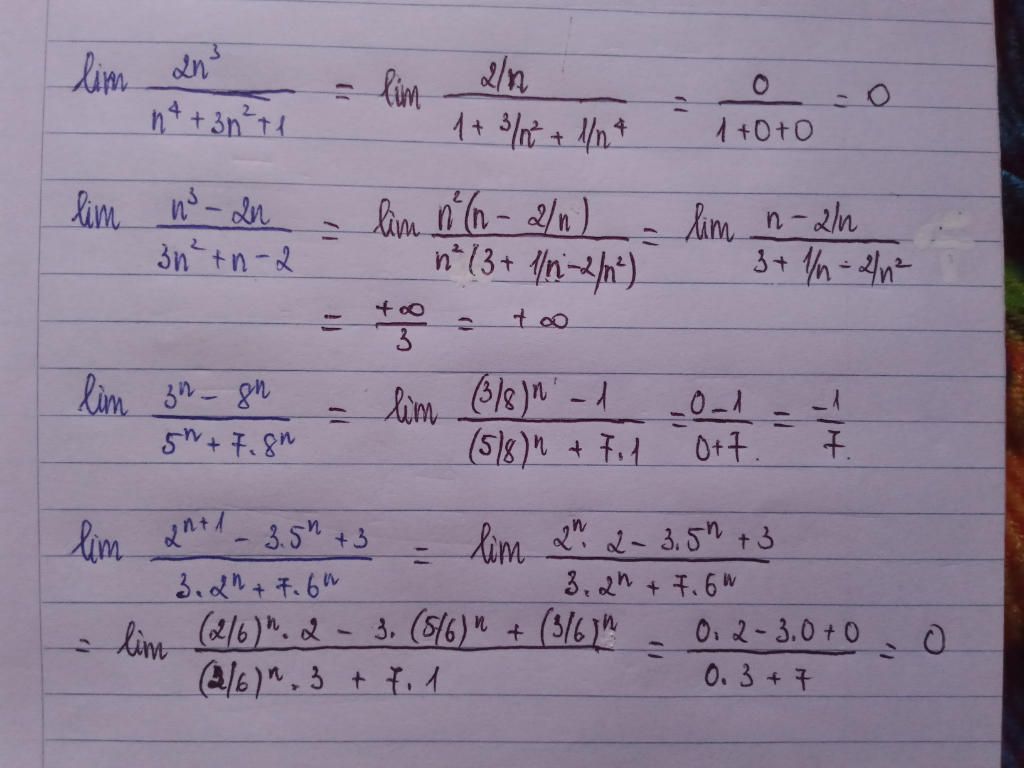 lim 2n³/(n⁴ + 3n² + 1) = lim (2/n)/(1 + 3/n² + 1/n⁴) = 0/(1+0+0) = 0
lim (n³ − 2n)/(3n² + n − 2) = lim n²(n − 2/n)/n²(3 + 1/n − 2/n²) = lim (n − 2/n)/(3 + 1/n − 2/n²)
= +∞/3 = +∞
lim (3ⁿ − 8ⁿ)/(5ⁿ + 7.8ⁿ) = lim ((3/8)ⁿ − 1)/((5/8)ⁿ + 7.1) = (0−1)/(0+7) = −1/7
lim (2ⁿ⁺¹ − 3.5ⁿ + 3)/(3.2ⁿ + 7.6ⁿ) = lim (2ⁿ.2 − 3.5ⁿ + 3)/(3.2ⁿ + 7.6ⁿ)
= lim ((2/6)ⁿ.2 − 3.(5/6)ⁿ + (3/6)ⁿ)/((2/6)ⁿ.3 + 7.1) = (0.2 − 3.0 + 0)/(0.3 + 7) = 0